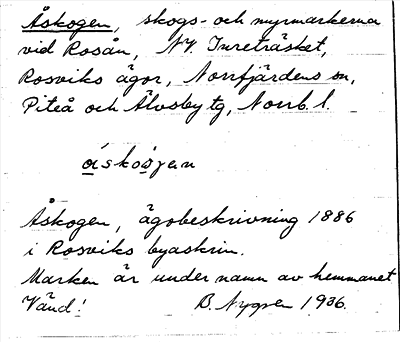 Åskogen, skogs- och myrmarkerna
vid Rosån, NV. Inreträsket,
Rosviks ägor, Norrfjärdens sn,
Piteå och Älvsby tg, Norrb. l.
åskoʒen
Åskogen, ägobeskrivning 1886
i Rosviks byaskrin.
Marken är under namn av hemmanet
Vänd! B. Nygren 1936.